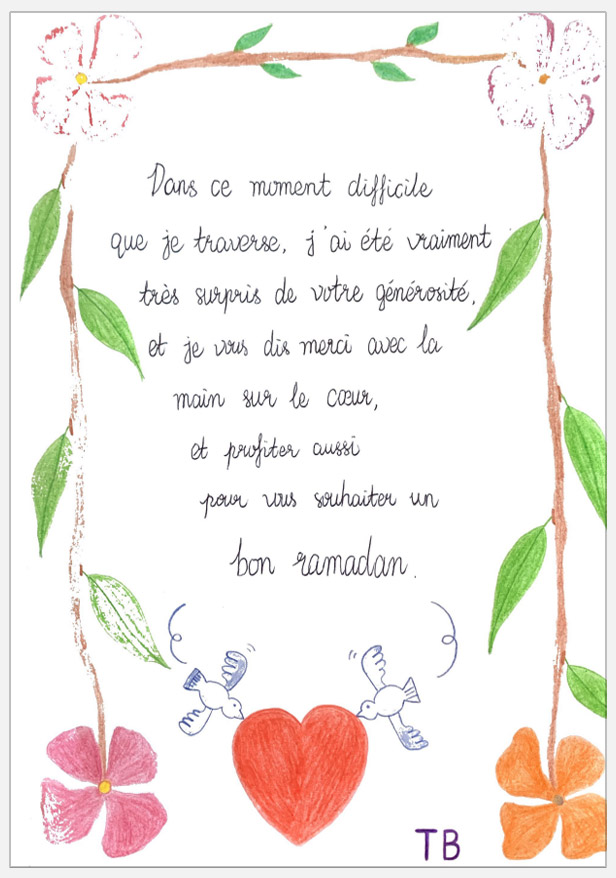 Dans ce moment difficile
que je traverse, j'ai été vraiment
très surpris de votre générosité,
et je vous dis merci avec la
main sur le cœur,
et profiter aussi
pour vous souhaiter un
bon ramadan.
TB